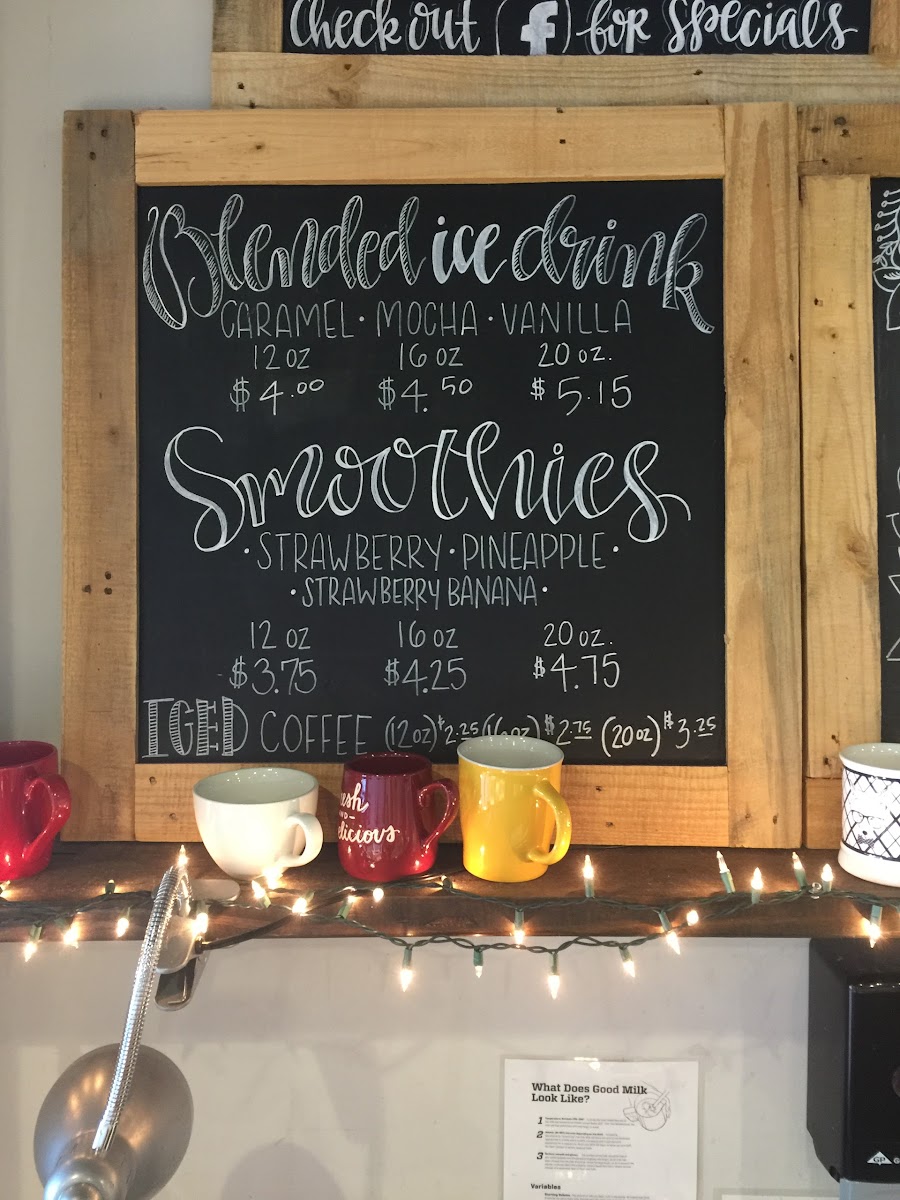 Check out (f) for specials
Blended ice drink
CARAMEL · MOCHA · VANILLA
12 oz 16 oz 20 oz.
$4.00 $4.50 $5.15
Smoothies
· STRAWBERRY · PINEAPPLE ·
· STRAWBERRY BANANA ·
12 oz 16 oz 20 oz.
$3.75 $4.25 $4.75
ICED COFFEE (12oz) $2.25 (16oz) $2.75 (20oz) $3.25
esh
AND
elicious
What Does Good Milk
Look Like?
1
2
3
Variables
GP